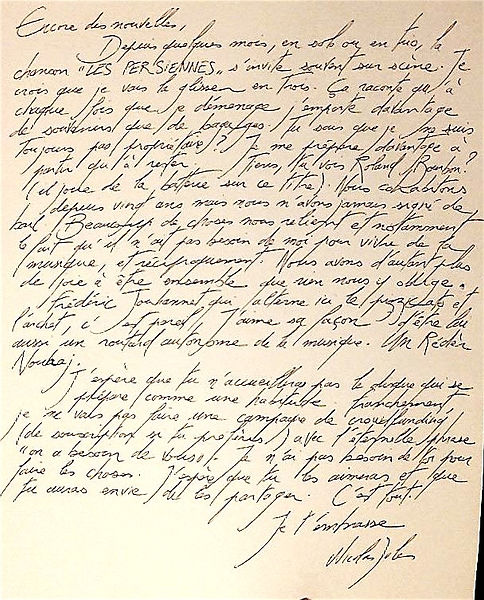 Encore des nouvelles,
Depuis quelques mois, en solo ou en trio, la
chanson "LES PERSIENNES" s'invite souvent sur scène. Je
crois que je vais te glisser en trois. Ça raconte qu'à
chaque fois que je déménage j'emporte davantage
de souvenirs que de bagages. Tu sais que je ne suis
toujours pas propriétaire? Je me prépare davantage à
partir qu'à rester. Tiens, tu vois Roland Bourbon?
(il joue de la batterie sur ce titre). Nous
depuis vingt ans mais nous n'avons jamais signé de
bail. Beaucoup de choses nous relient et notamment
le fait qu'il n'ait pas besoin de moi pour vivre de la
musique, et réciproquement. Nous avons d'autant plus
de joie à être ensemble que rien nous y oblige.
Frédéric qui alterne ici le pizzicato et
l'archet, c'est pareil. J'aime sa façon d'être lui
aussi un routard autonome de la musique. Un
J'espère que tu n'accueilleras pas le disque qui se
prépare comme une habitude. Franchement,
je ne vais pas faire une campagne de crowdfunding
(de souscription si tu préfères) avec l'éternelle phrase
"on a besoin de vous". Je n'ai pas besoin de toi pour
faire les choses. J'espère que tu les aimeras et que
tu auras envie de les partager. C'est tout.
Je t'embrasse
Nicolas Jules